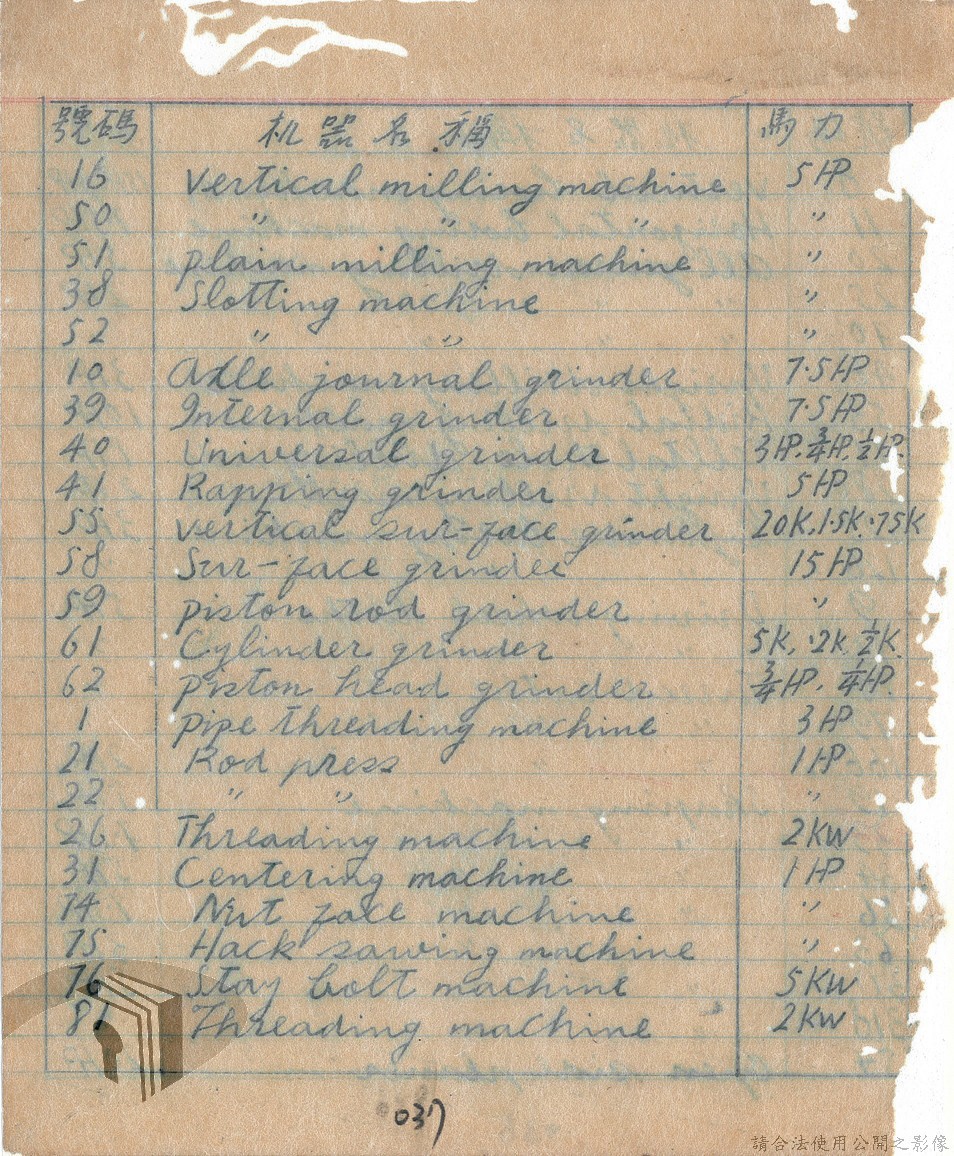 號碼 机器名稱 馬力
16 Vertical milling machine 5 HP
50 〃 〃 〃 〃
51 plain milling machine 〃
38 Slotting machine 〃
52 〃 〃 〃
10 Axle journal grinder 7.5 HP
39 Internal grinder 7.5 HP
40 Universal grinder 3 HP. 3/4 HP. 1/2 HP.
41 Rapping grinder 5 HP
55 vertical sur-face grinder 20K. 1.5K. .75K
58 Sur-face grinder 15 HP
59 piston rod grinder 〃
61 Cylinder grinder 5K, .2K 1/2K.
62 piston head grinder 3/4 HP. 1/4 HP.
1 pipe threading machine 3 HP
21 Rod press 1 HP
22 〃 〃 〃
26 Threading machine 2KW
31 Centering machine 1 HP
74 Nut face machine 〃
75 Hack sawing machine 〃
76 Stay bolt machine 5KW
81 Threading machine 2KW
037
請合法使用公開之影像